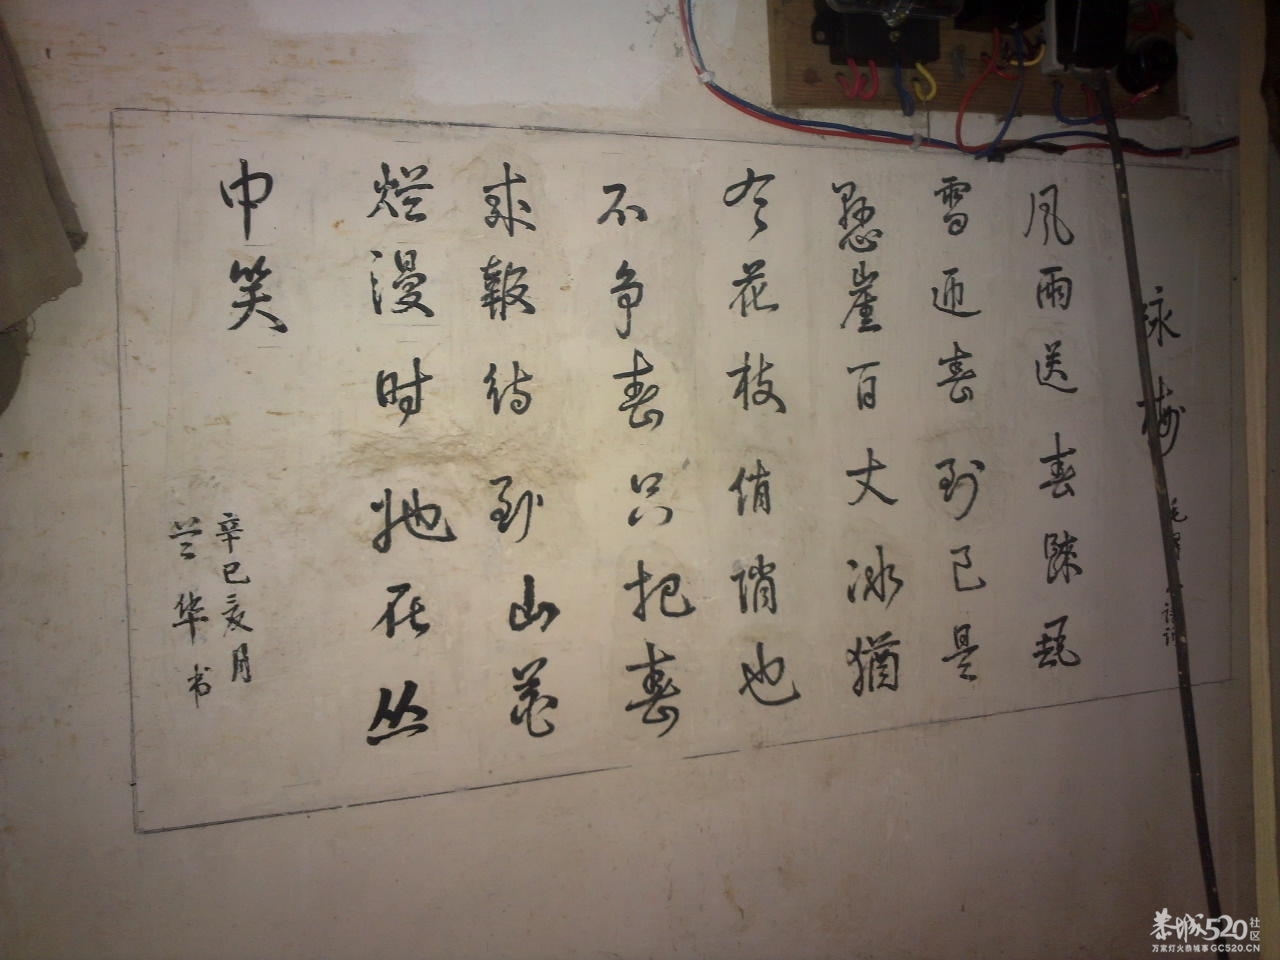 咏梅
風雨送春歸飛
雪迎春到已是
懸崖百丈冰猶
有花枝俏俏也
不争春只把春
来報待到山花
烂漫时她在丛
中笑
辛巳亥月
兰华书
恭城520社区
万家灯火恭城事GC520.CN